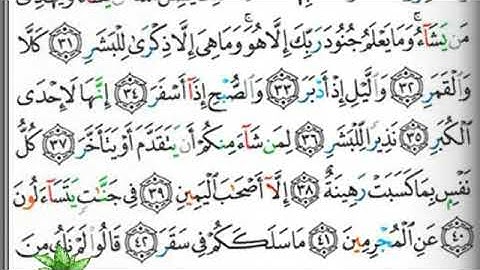 مَن يَشَآءُ ۚ وَمَا يَعْلَمُ جُنُودَ رَبِّكَ إِلَّا هُوَ ۚ وَمَا هِىَ إِلَّا ذِكْرَىٰ لِلْبَشَرِ ﴿٣١﴾ كَلَّا
وَالْقَمَرِ ﴿٣٢﴾ وَالَّيْلِ إِذْ أَدْبَرَ ﴿٣٣﴾ وَالصُّبْحِ إِذَآ أَسْفَرَ ﴿٣٤﴾ إِنَّهَا لَإِحْدَى
الْكُبَرِ ﴿٣٥﴾ نَذِيرًا لِّلْبَشَرِ ﴿٣٦﴾ لِمَن شَآءَ مِنكُمْ أَن يَتَقَدَّمَ أَوْ يَتَأَخَّرَ ﴿٣٧﴾ كُلُّ
نَفْسٍۭ بِمَا كَسَبَتْ رَهِينَةٌ ﴿٣٨﴾ إِلَّآ أَصْحَابَ الْيَمِينِ ﴿٣٩﴾ فِى جَنَّاتٍ يَتَسَآءَلُونَ
﴿٤٠﴾ عَنِ الْمُجْرِمِينَ ﴿٤١﴾ مَا سَلَكَكُمْ فِى سَقَرَ ﴿٤٢﴾ قَالُوا لَمْ نَكُ مِنَ